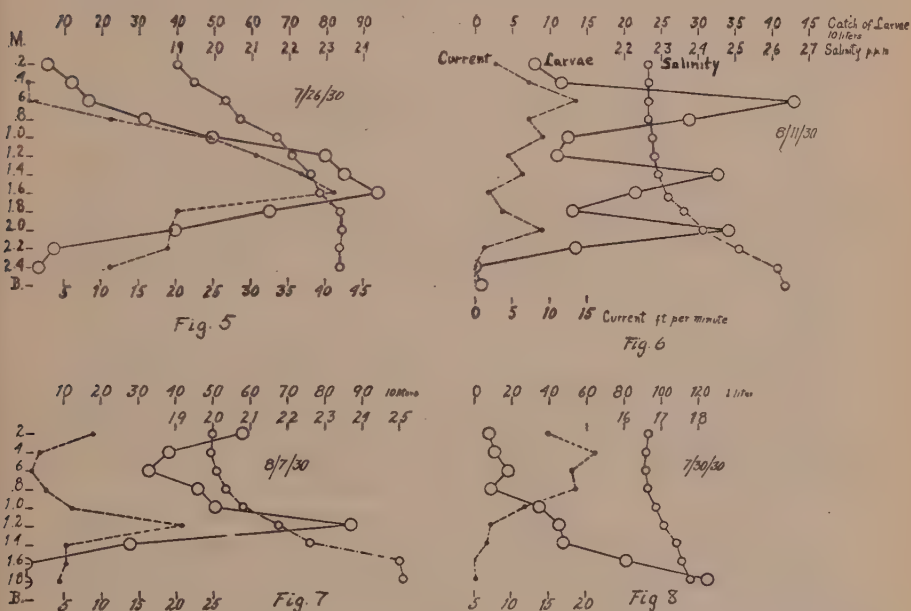 10 20 30 40 50 60 70 80 90
19 20 21 22 23 24
M.
.2
.4
.6
.8
1.0
1.2
1.4
1.6
1.8
2.0
2.2
2.4
B.
7/26/30
5 10 15 20 25 30 35 40 45
Fig. 5
0 5 10 15 20 25 30 35 40 45 Catch of Larvae
10 liters
22 23 24 25 26 27 Salinity p.p.m
Current Larvae Salinity
8/11/30
0 5 10 15 Current ft per minute
Fig. 6
10 20 30 40 50 60 70 80 90 10 liters
19 20 21 22 23 24 25
2
4
6
.8
1.0
1.2
1.4
1.6
1.8
B.
8/7/30
5 10 15 20 25
Fig. 7
0 20 40 60 80 100 120 1 liter
16 17 18
7/30/30
5 10 15 20
Fig 8